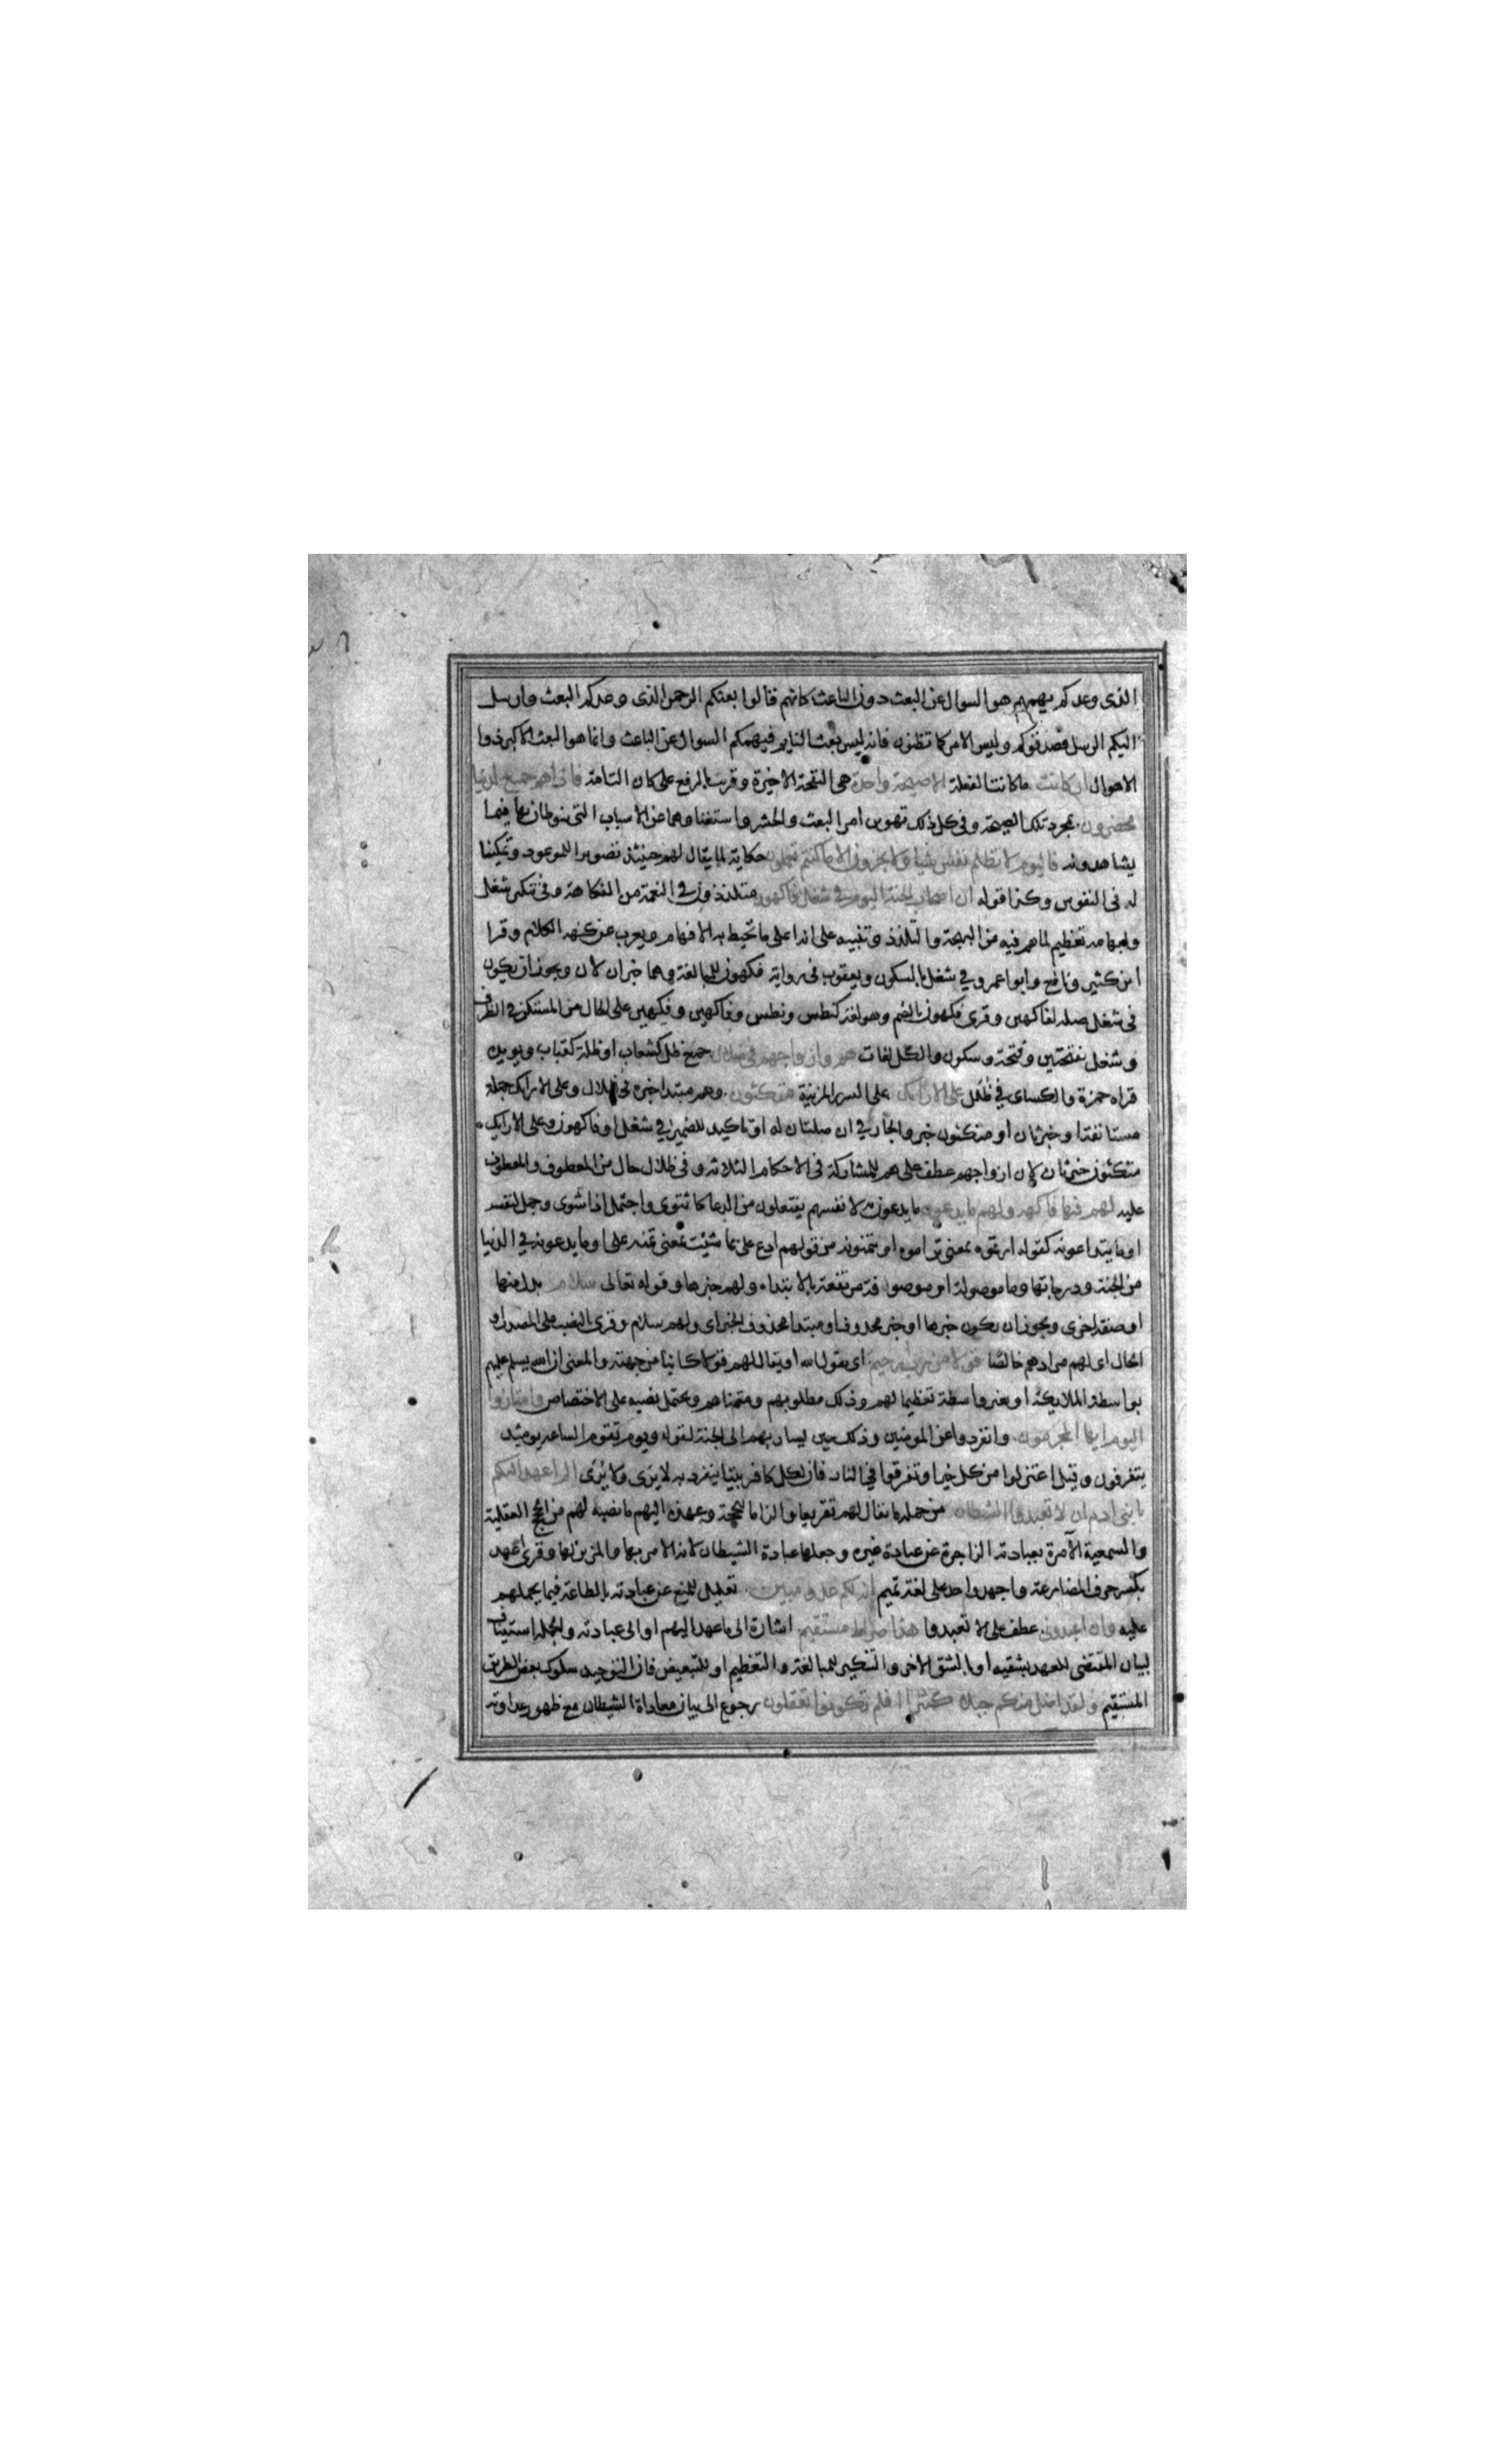 الذى وعدكم يهمهم هو السوال عن البعث دون الباعث كانهم قالوا بعثكم الرحمن الذى وعدكم البعث وارسل
اليكم الرسل فصدقوكم وليس الامر كما تظنون فانه ليس بعث النايم فيهمكم السوال عن الباعث وانما هو البعث الاكبر ذوا
الاهوال ان كانت ماكانت الفعلة الاصيحة واحدة هى النفخة الاخيرة وقريت بالرفع على كان التامة فاذاهم جميع لدينا
محضرون بمجرد تلك الصيحة وفى كل ذلك تهوين امر البعث والحشر واستغناوهما عن الاسباب التى ينوطان بها فيما
يشاهدونه فاليوم لا تظلم نفس شيا ولا تجزون الا ماكنتم تعملون حكاية لما يقال لهم حينئذ تصويرا للموعود وتمكينا
له فى النفوس وكذا قوله ان اصحاب الجنة اليوم فى شغل فاكهون متلذذون فى النعمة من الفكاهة وفى تنكير شغل
وابهامه تعظيم لما هم فيه من البهجة والتلذذ وتنبيه على انه اعلى ما تحيط به الافهام ويعرب عن كنهه الكلام وقرا
ابن كثير ونافع وابوا عمرو فى شغل بالسكون ويعقوب فى رواية فكهون للمبالغة وهما خبران لان ويجوز ان يكون
فى شغل صلة لفاكهين وقرى فكهون بالضم وهو لغة كنطس ونطس وفاكهين وفكهين على الحال من المستكن فى الظرف
وشغل بفتحتين وفتحة وسكون والكل لغات هم وازواجهم فى ظلال جمع ظل كشعاب او ظلة كقباب ويويده
قراه حمزة والكساى فى ظلل على الارائك على السرر المزينة متكئون وهم مبتدا خبره فى ظلال وعلى الارائك جملة
مستانفة او خبر ثان او متكئون خبر والجار فى ان صلتان له او تاكيد للضمير فى شغل او فاكهون وعلى الارايك
متكئون خبر ثان لان ازواجهم عطف على هم للمشاركة فى الاحكام الثلاثة وفى ظلال حال من المعطوف والمعطوف
عليه لهم فيها فاكهة ولهم مايدعون مايدعون به لانفسهم يفتعلون من الدعا كاشتوى واجتمل اذا شوى وجمل لنفسه
او مايتداعونه كقوله ارتموه بمعنى تراموه او يتمنونه من قولهم ادع على بما شئت بمعنى تمنه على او مايدعونه فى الدنيا
من الجنة ودرجاتها وما موصولة او موصوفة مرتفعة بالابتداء ولهم خبرها وقوله تعالى سلام بدل منها
او صفة اخرى ويجوز ان يكون خبرها او خبر محذوف او مبتدا محذوف الخبر اى ولهم سلام وقرى بالنصب على المصدر او
الحال اى لهم مرادهم خالصا قولا من رب رحيم اى يقول الله او يقال لهم قولا كاينا من جهته والمعنى ان الله يسلم عليهم
بواسطة الملايكة او بغير واسطة تعظيما لهم وذلك مطلوبهم ومتمناهم ويحتمل نصبه على الاختصاص وامتازوا
اليوم ايها المجرمون وانفردوا عن المومنين وذلك حين يسار بهم الى الجنة لقوله ويوم تقوم الساعة يوميذ
يتفرقون وقيل اعتزلوا من كل خير او تفرقوا فى النار فان لكل كافر بيتا ينفرد به لا يَرى ولا يُرى الم اعهد اليكم
يا بنى ادم ان لا تعبدوا الشيطان من جملة ما يقال لهم تقريعا والزاما للحجة وعهده اليهم ما نصبه لهم من الحجج العقلية
والسمعية الآمرة بعبادته الزاجرة عن عبادة غيره وجعلها عبادة الشيطان لانه الامر بها والمزين لها وقرى اعهد
بكسر حرف المضارعة واحهد واحد على لغة تميم انه لكم عدو مبين تعليل للمنع عن عبادته بالطاعة فيما يحملهم
عليه وان اعبدونى عطف على الا تعبدوا هذا صراط مستقيم اشارة الى ما عهد اليهم او الى عبادته والجملة استيناف
لبيان المقتضى للعهد بشقيه او بالشق الاخر والتنكير للمبالغة والتعظيم او للتبعيض فان التوحيد سلوك بعض الطريق
المستقيم ولقد اضل منكم جبلا كثيرا افلم تكونوا تعقلون رجوع الى بيان معاداة الشيطان مع ظهور عداوته